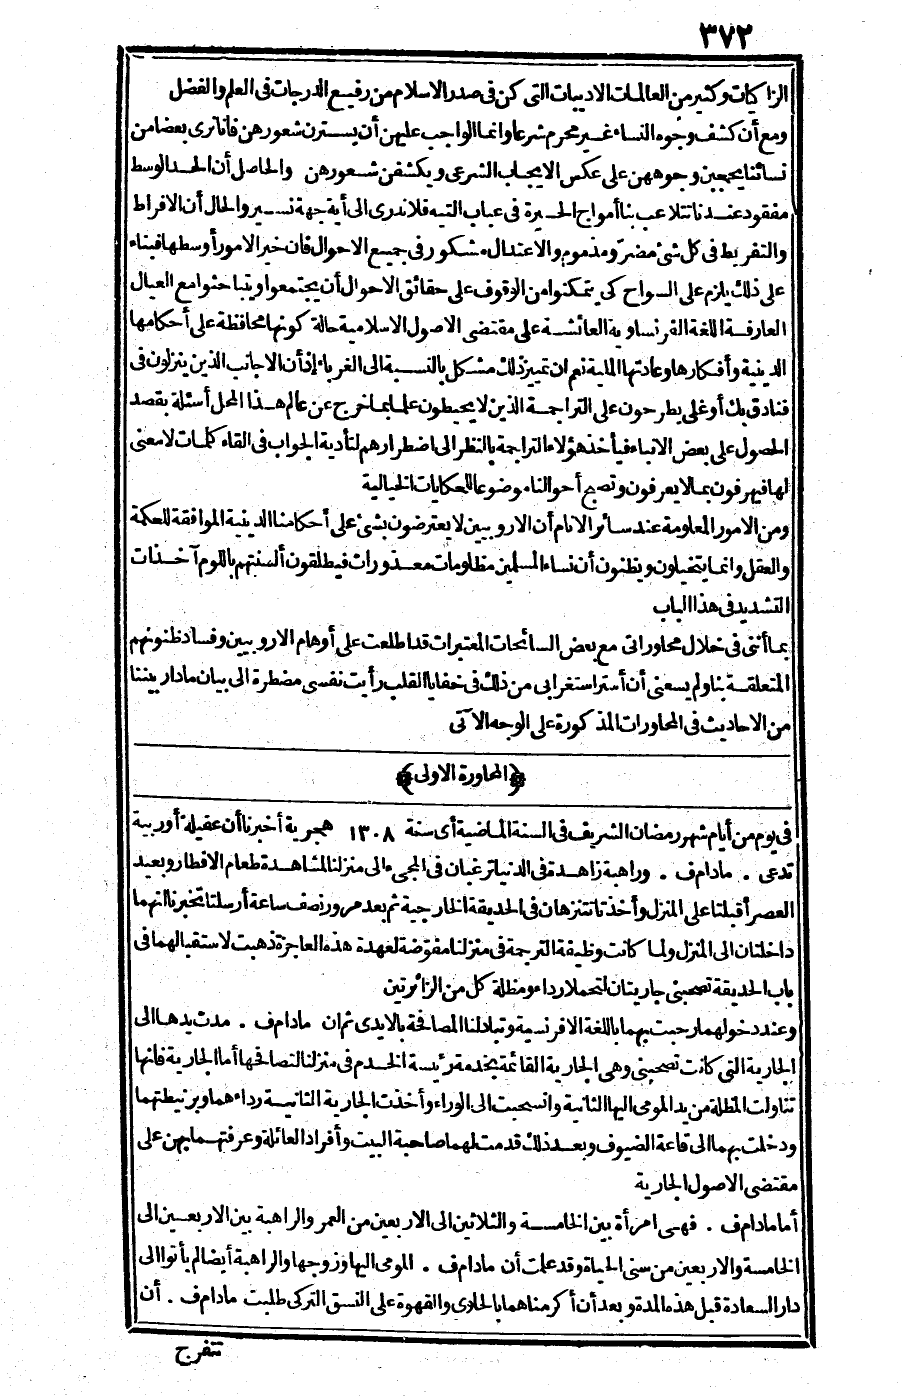 ٣٧٢
الزاكيات وكثير من العالمات الاديبات التى كن فى صدر الاسلام من رفيع الدرجات فى العلم والفضل
ومع أن كشف وجوه النساء غير محرم شرعا وانما الواجب عليهن أن يسترن شعورهن فاناترى بعضا من
نسائنا يحجبن وجوههن على عكس الايجاب الشرعى ويكشفن شعورهن والحاصل أن الحد الوسط
مفقود عندنا تتلاعب بنا أمواج الحيرة فى عباب التيه فلاندرى الى أية جهة نسير والحال أن الافراط
والتفريط فى كل شئ مضر ومذموم والاعتدال مشكور فى جميع الاحوال فان خير الامور أوسطها فبناء
على ذلك يلزم على السواح كى يتمكنوا من الوقوف على حقائق الاحوال أن يجتمعوا ويتباحثوا مع العيال
العارفة اللغة الفرنساوية العائشة على مقتضى الاصول الاسلامية حالة كونها محافظة على أحكامها
الدينية وأفكارها وعادتها الملية نعم ان تمييز ذلك مشكل بالنسبة الى الغرباء إذ أن الاجانب الذين ينزلون فى
فنادق بك أوغلى يطرحون على التراجمة الذين لا يحيطون علما بما خرج عن عالم هذا المحل أسئلة بقصد
الحصول على بعض الانباء فيأخذ هؤلاء التراجمة بالنظر الى اضطرارهم لتأدية الجواب فى القاء كلمات لا معنى
لها فيهرفون بما لا يعرفون وتصبح أحوالنا موضوعا للحكايات الخيالية
ومن الامور المعلومة عند سائر الانام أن الاروبيين لا يعترضون بشئ على أحكامنا الدينية الموافقة للحكمة
والعقل وانما يتخيلون ويظنون أن نساء المسلمين مظلومات معذورات فيطلقون ألسنتهم باللوم آخذات
التشديد فى هذا الباب
بما أننى فى خلال محاوراتى مع بعض السائحات المعتبرات قد اطلعت على أوهام الاروبيين وفساد ظنونهم
المتعلقة بنا ولم يسعنى أن أستر استغرابى من ذلك فى خفايا القلب رأيت نفسى مضطرة الى بيان مادار بيننا
من الاحاديث فى المحاورات المذكورة على الوجه الآتى
﴿المحاورة الاولى﴾
فى يوم من أيام شهر رمضان الشريف فى السنة الماضية أى سنة ١٣٠٨ هجرية أخبرنا أن عقيلة أوربية
تدعى . مادام ف . وراهبة زاهدة فى الدنيا ترغبان فى المجىء الى منزلنا لمشاهدة طعام الافطار وبعيد
العصر أقبلتا على المنزل وأخذتا تتنزهان فى الحديقة الخارجية ثم بعد مرور نصف ساعة أرسلتا تخبرنا انهما
داخلتان الى المنزل ولما كانت وظيفة الترجمة فى منزلنا مفوضة لعهدة هذه العاجزة ذهبت لاستقبالهما فى
باب الحديقة تصحبنى جاريتان لتحملا رداء ومظلة كل من الزائرتين
وعند دخولهما رحبت بهما باللغة الافرنسية وتبادلنا المصافحة بالايدى ثم ان مادام ف . مدت يدها الى
الجارية التى كانت تصحبنى وهى الجارية القائمة بخدمة رئيسة الخدم فى منزلنا لتصافحها أما الجارية فانها
تناولت المظلة من يد المومى اليها الثانية وانسحبت الى الوراء وأخذت الجارية الثانية رداءهما وبرنيطتهما
ودخلت بهما الى قاعة الضيوف وبعد ذلك قدمت لهما صاحبة البيت وأفراد العائلة وعرفتهما بهن على
مقتضى الاصول الجارية
أما مادام ف . فهى امرأة بين الخامسة والثلاثين الى الاربعين من العمر والراهبة بين الاربعين الى
الخامسة والاربعين من سنى الحياة وقد علمت أن مادام ف . المومى اليها وزوجها والراهبة أيضا لم يأتوا الى
دار السعادة قبل هذه المدة وبعد أن أكرمناهما بالحلوى والقهوة على النسق التركى طلبت مادام ف . أن
تتفرج